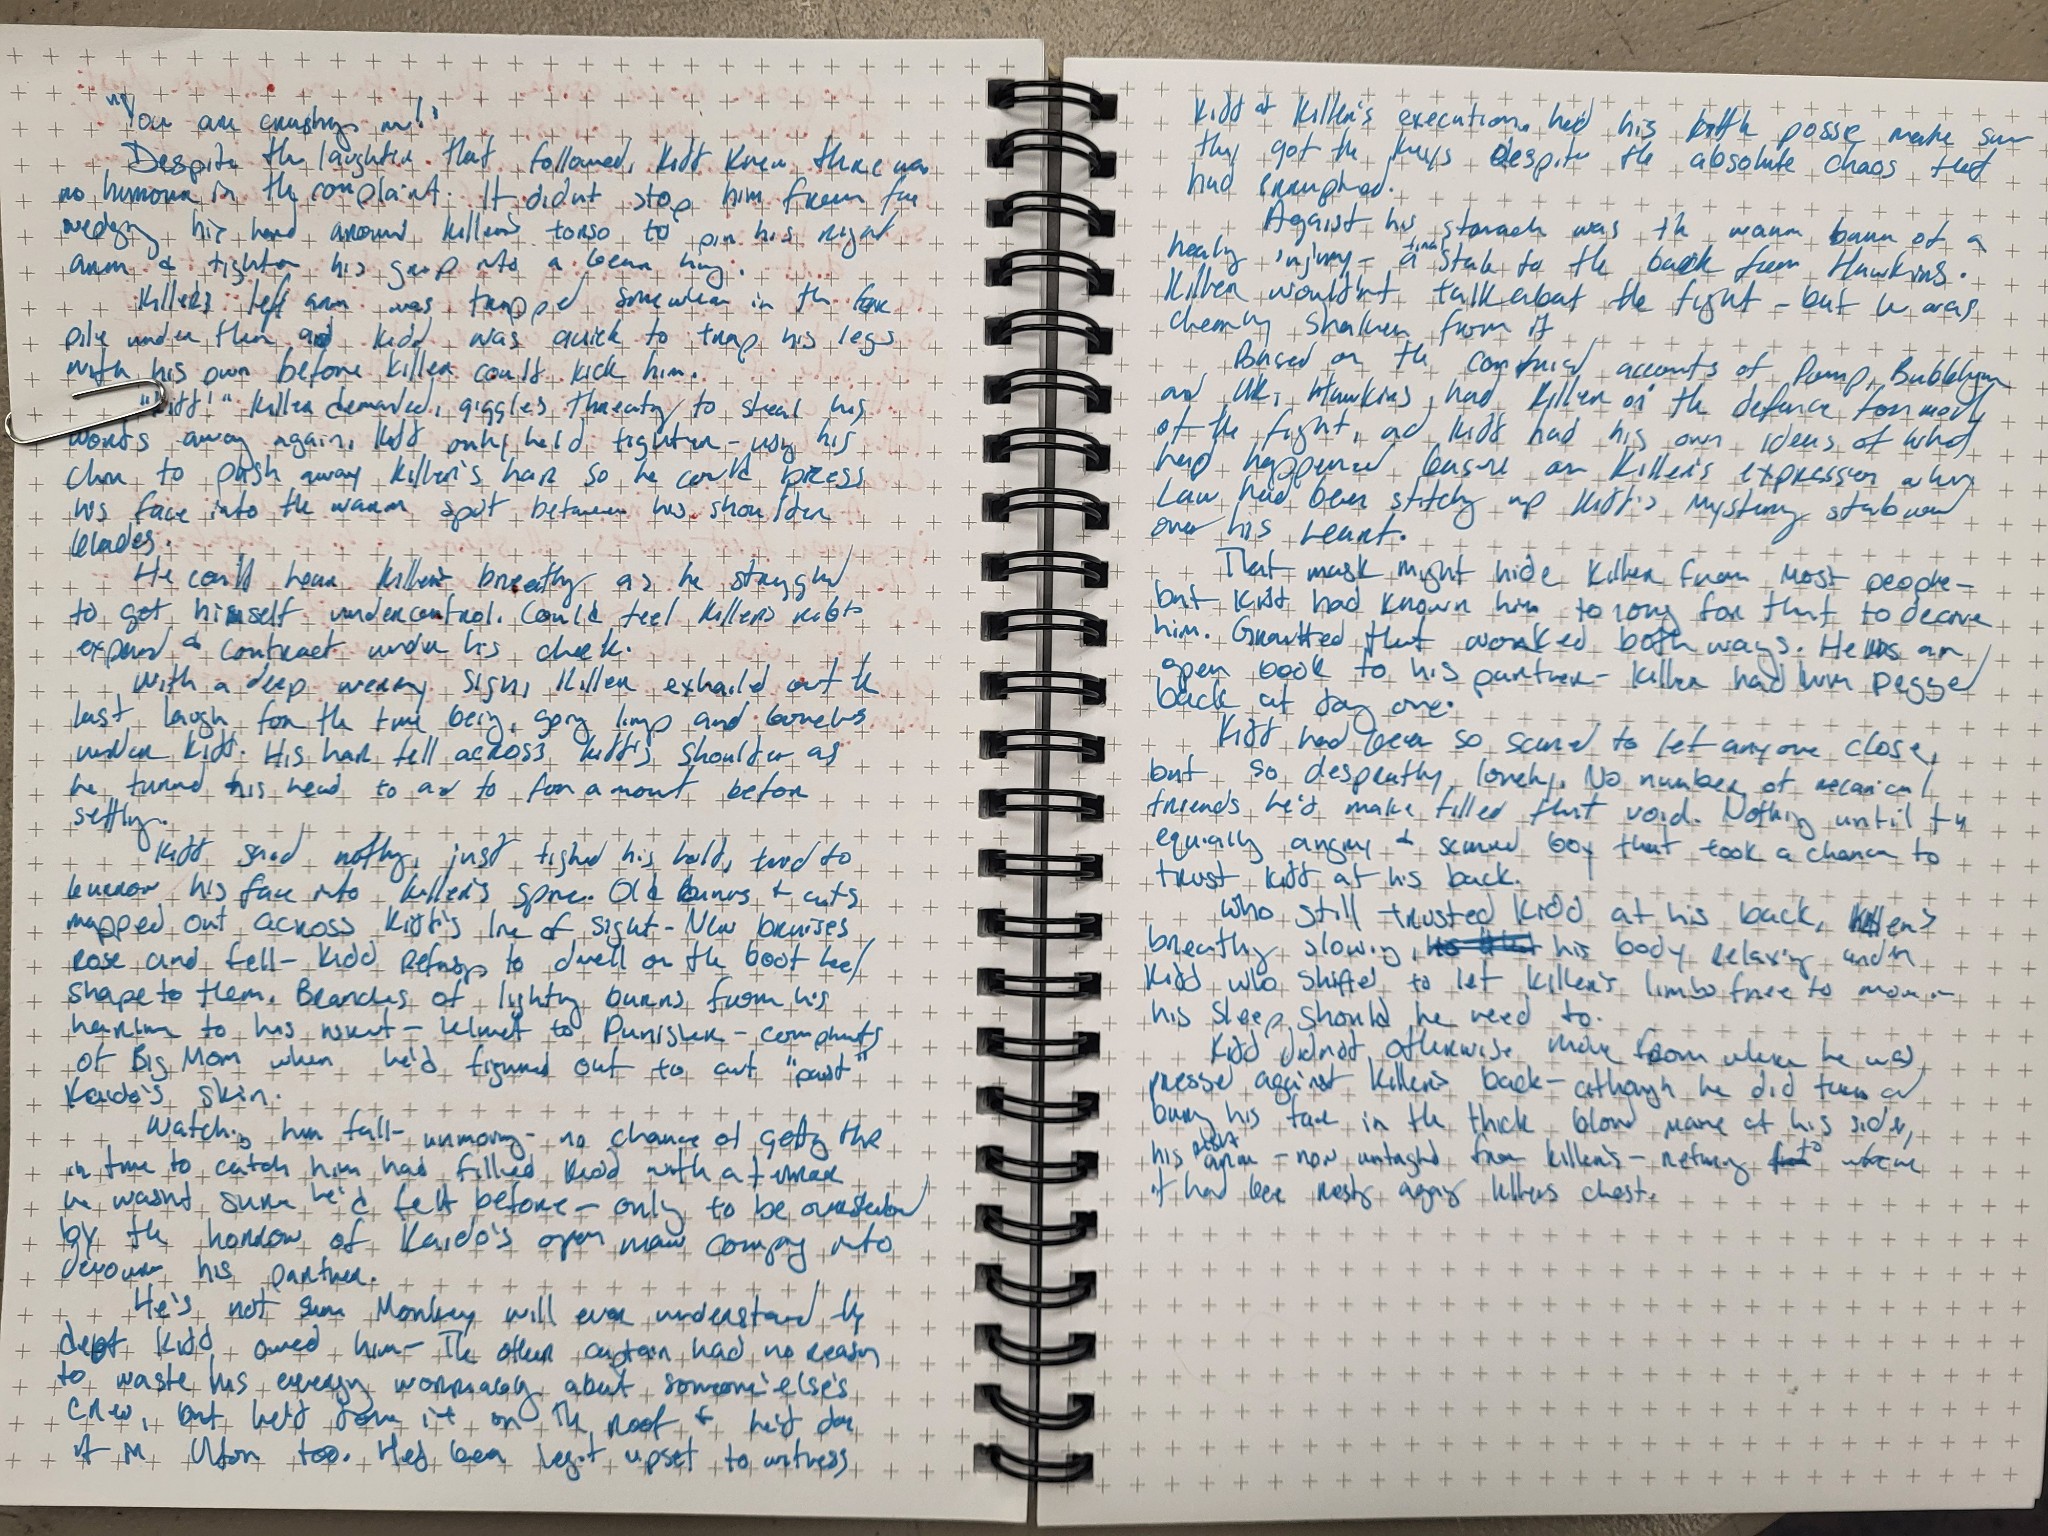 "You are crushing me!"
Despite the laughter that followed, Kidd knew there was
no humour in the complaint. It didn't stop him from
wedging his hand around Killer's torso to pin his right
arm & tighten his grip into a bear hug.
Killer's left arm was trapped somewhere in the
pile under them and Kidd was quick to trap his legs
with his own before Killer could kick him.
"Kidd!" Killer demanded, giggles threating to steal his
words away again. Kidd only held tighter - using his
chin to push away Killer's hair so he could press
his face into the warm spot between his shoulder
blades.
He could hear Killer's breathing as he struggled
to get himself undercontrol. Could feel Killer's ribs
expand & contract under his cheek.
With a deep weary sigh, Killer exhaled out the
last laugh for the time being, going limp and boneless
under Kidd. His hair fell across Kidd's shoulder as
he turned his head to for a momt before
settling.
Kidd said nothing, just tighed his hold, tried to
burrow his face into Killer's spine. Old burns & cuts
mapped out across Kidd's line of sight - New bruises
rose and fell - Kidd refusing to dwell on the boot heel
shape to them. Branches of lightng burns from his
hairline to his waist - helmet to Punisher - compliments
of Big Mom when he'd figured out to cut "past"
Kaido's skin.
Watching him fall - unmoving - no chance of getting there
in time to catch him had filled Kidd with a terror
he wasnt sure he'd felt before - only to be
by the horror of Kaido's open maw coming into
devour his partner.
He's not sure Monkey will ever understand the
dept Kidd owed him - The other captain had no reason
to waste his energy worrying about someone else's
crew, but he'd done it on the roof & he'd done
it in Udon too. He'd been legit upset to witness
Kidd at Killer's execution, had his posse make sure
they got the keys despite the absolute chaos that
had errupted.
Against his stomach was the warm burn of a
healing injury - a final stab to the back from Hawkins.
Killer wouldn't talk about the fight - but he was
clearly shaken from it
Based on the combined accounts of Pomp, Bubblegum
and UK, Hawkins had Killer on the defence for most
of the fight, and Kidd had his own ideas of what
had happened based on Killer's expression when
Law had been stitching up Kidd's mystery stab wound
over his heart.
That mask might hide Killer from most people -
but Kidd had known him to long for that to decieve
him. Grantted that worked both ways. He was an
open book to his partner - Killer had him pegged
back at day one.
Kidd had been so scared to let anyone close,
but so despratly lonely. No number of mecanical
friends he'd make filled that void. Nothing until the
equally angry & scared boy that took a chance to
trust Kidd at his back.
Who still trusted Kidd at his back, Killer's
breathing slowing, his body relaxing under
Kidd who shifted to let Killer's limbs free to move in
his sleep should he need to.
Kidd did not otherwise move from where he was
pressed against Killer's back - although he did turn and
bury his face in the thick blond mane at his side,
his right arm - now untangled from Killer's - returning to where
it had been resting against Killers chest.